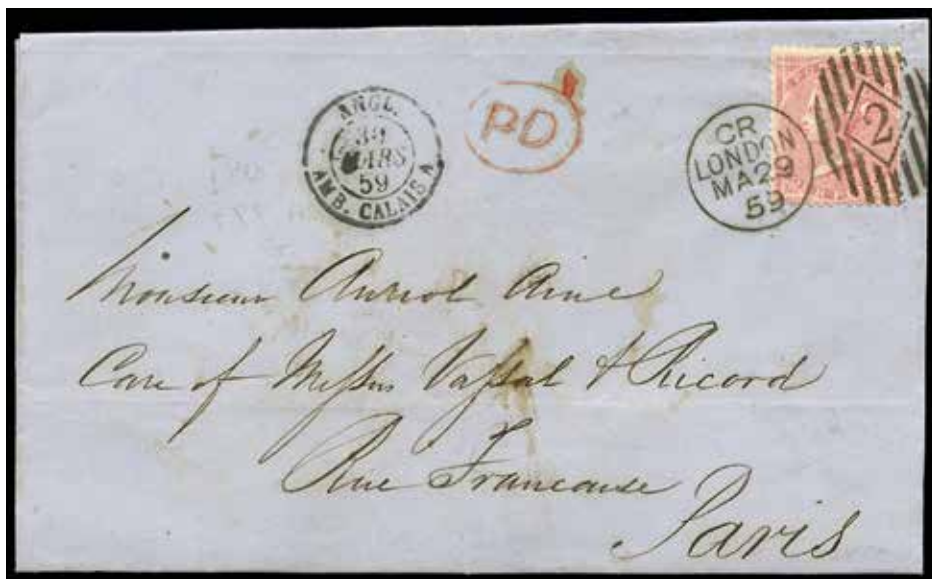 ANGL.
30
MARS
59
AMB. CALAIS A
PD
CR
LONDON
MA 29
59
2
Monsieur Auriol Aine
Care of Messrs Vassal & Ricord
Rue Francaise
Paris